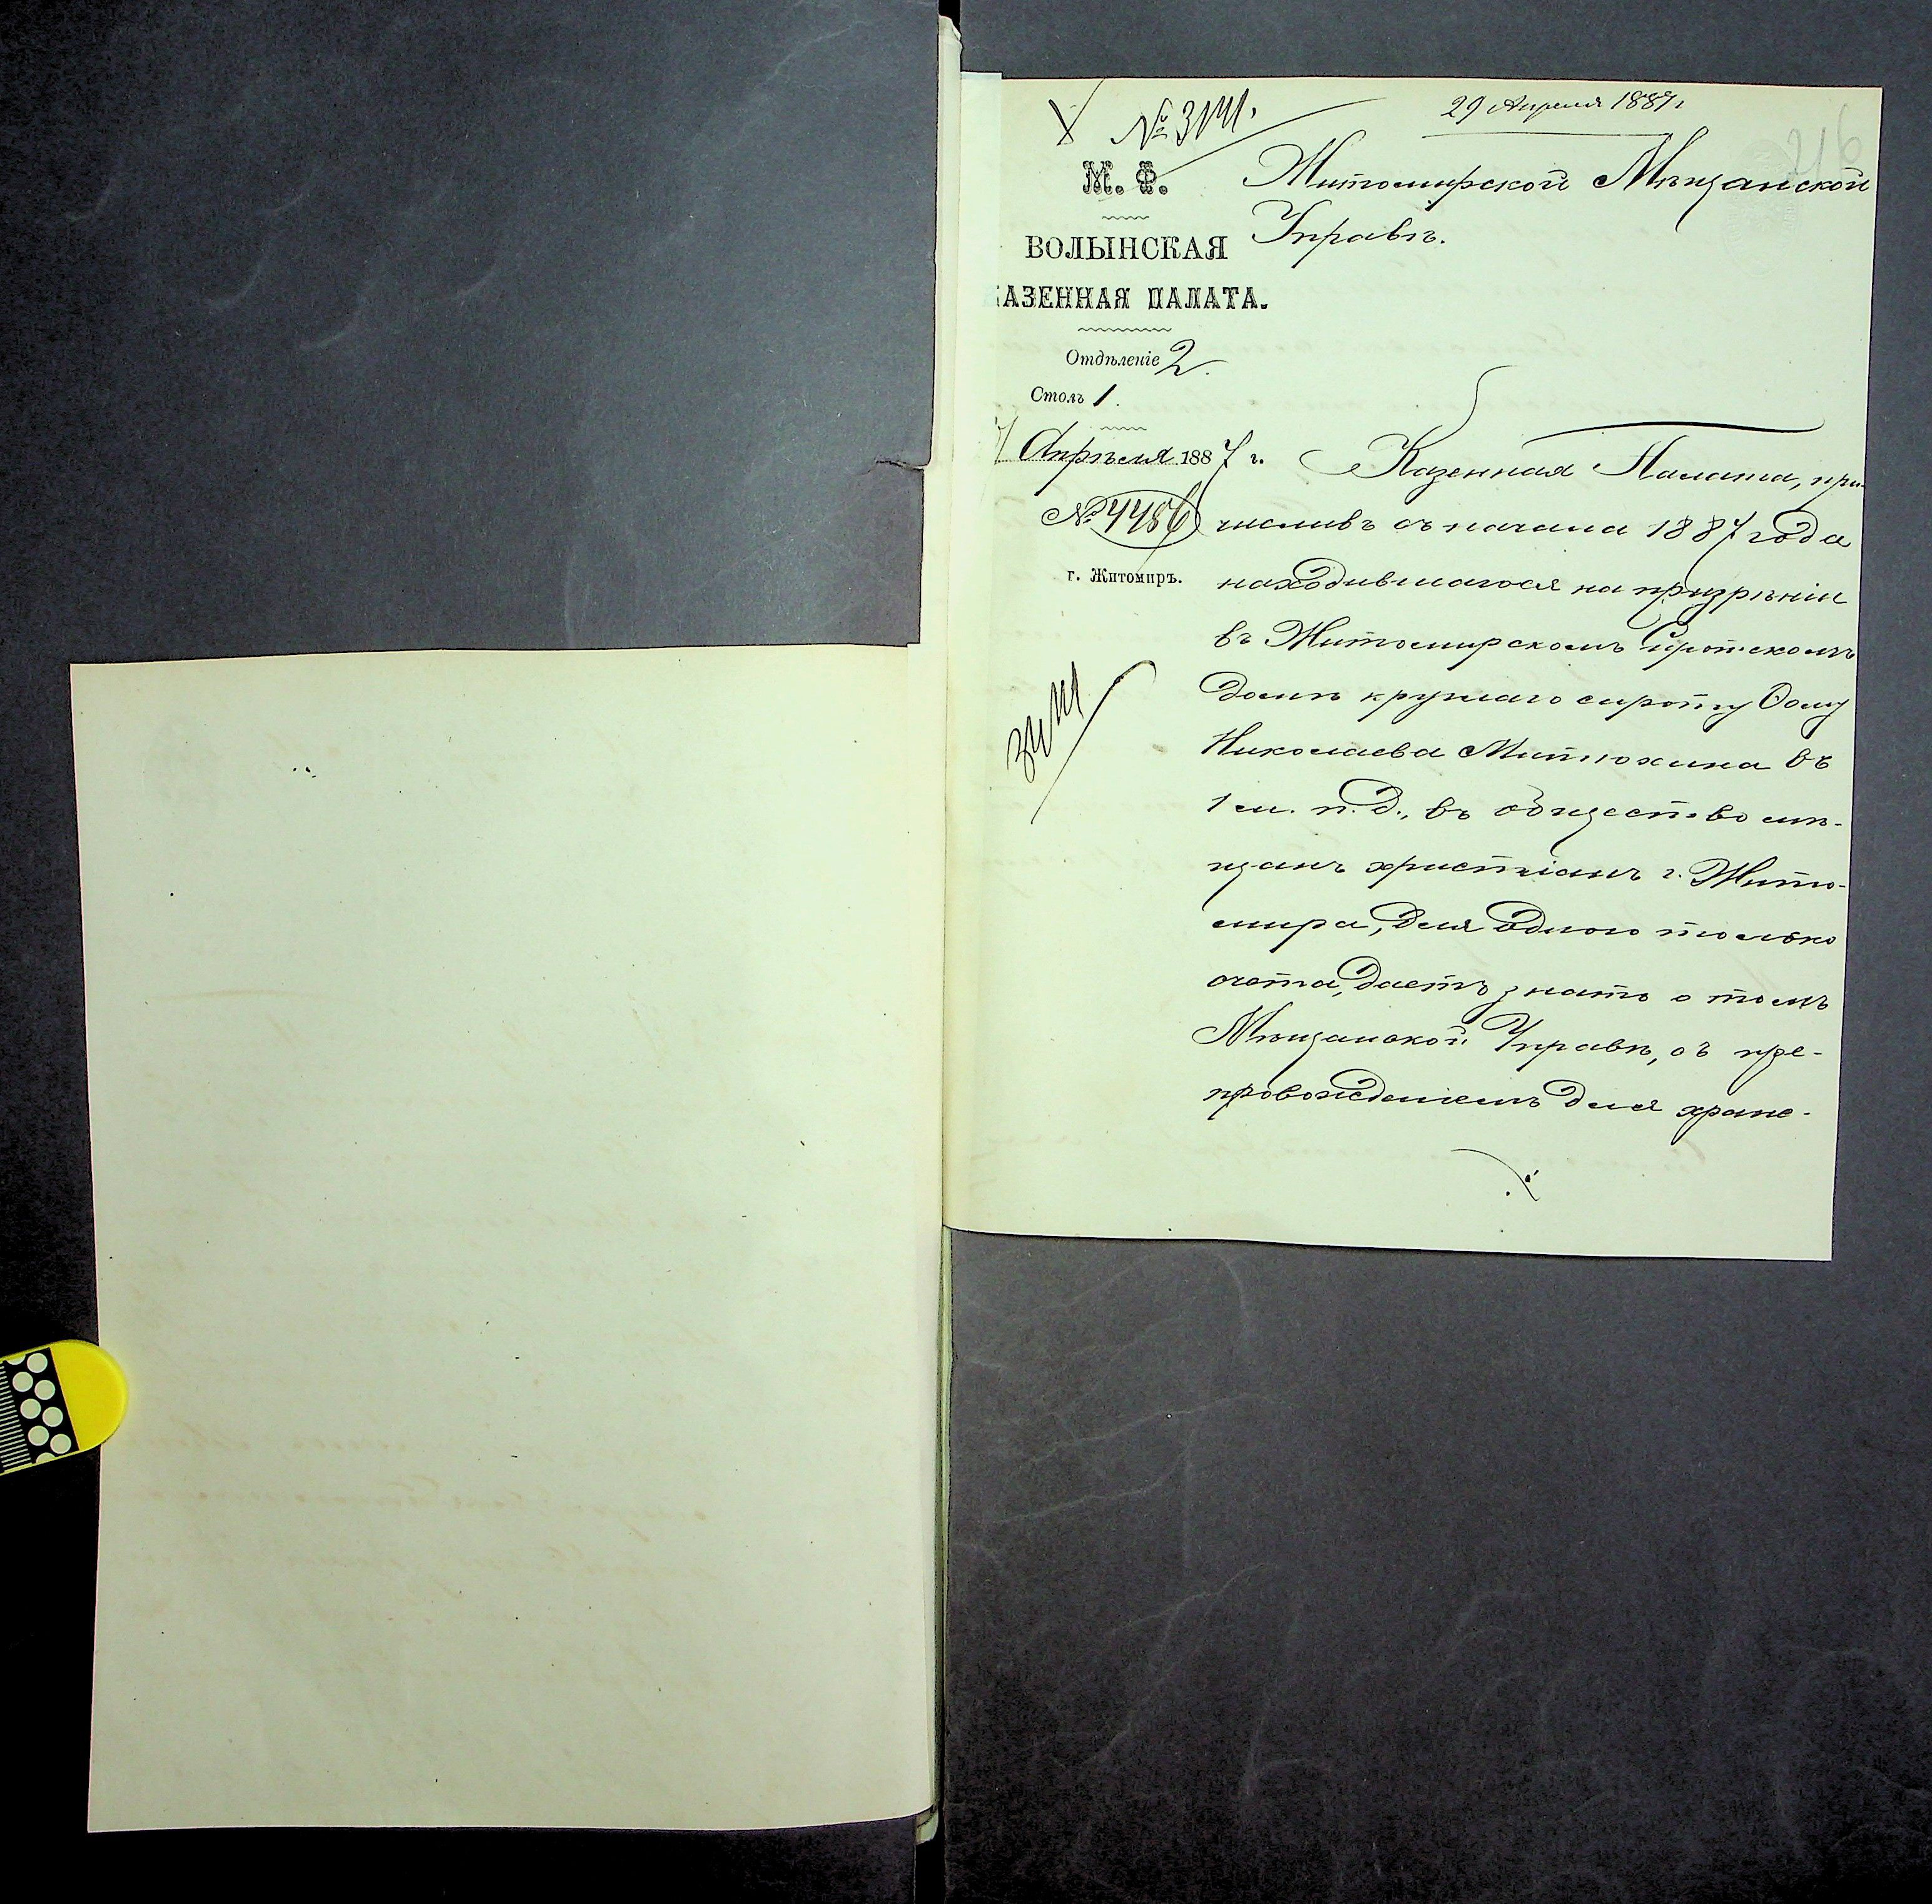 29 Апреля 1887 г.
216
М. Ф.
ВОЛЫНСКАЯ
КАЗЕННАЯ ПАЛАТА.
Отдѣленіе 2.
Столъ 1.
Апрѣля 1887 г.
№ 4486
г. Житомиръ.
Житомирской Мѣщанской
Управѣ.
Казенная Палата, при-
числивъ съ начала 1887 года
находившагося на призрѣніи
въ Житомирскомъ Сиротскомъ
домѣ круглаго сироту Ѳому
Николаева Митюхина въ
1 м. п. д., въ общество мѣ-
щанъ христіанъ г. Жито-
мира, для одного только
счета, даетъ знать о томъ
Мѣщанской Управѣ, съ пре-
провожденіемъ для хране-